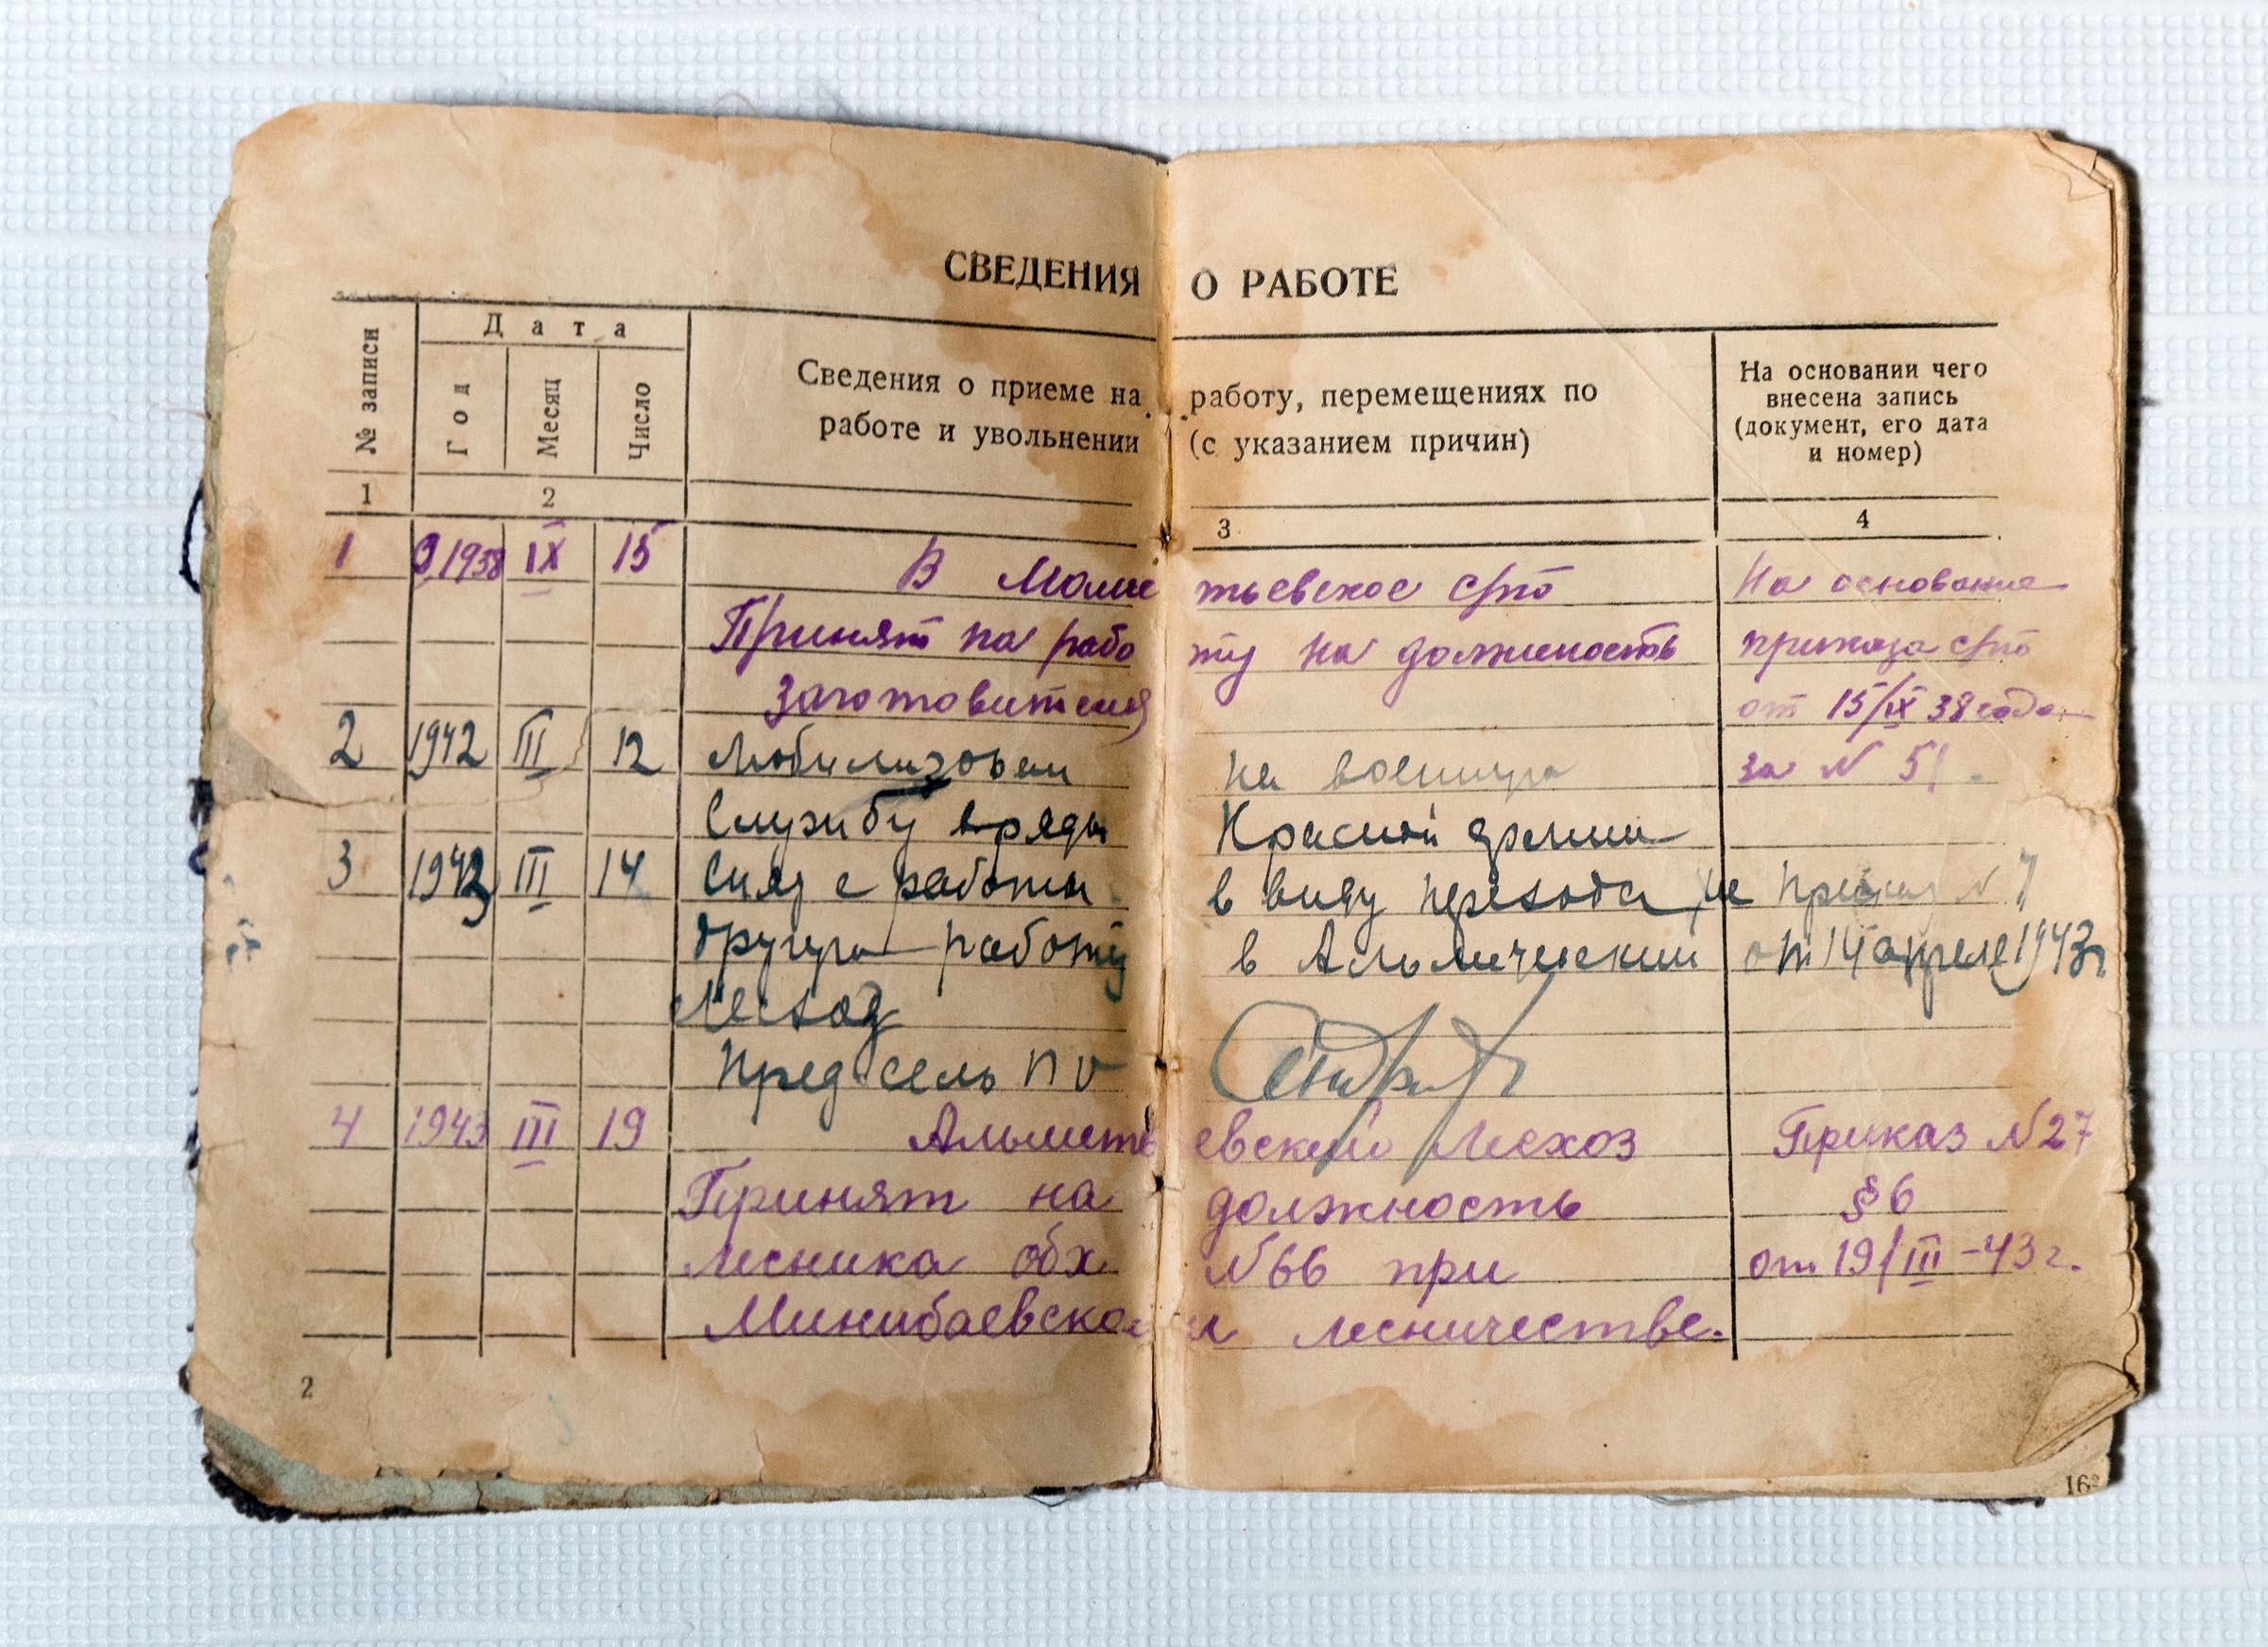 СВЕДЕНИЯ О РАБОТЕ
№ записи
Дата
Год
Месяц
Число
Сведения о приеме на работу, перемещениях по
работе и увольнении (с указанием причин)
На основании чего
внесена запись
(документ, его дата
и номер)
1 2 3 4
1 1938 IX 15 В тьевское На основание
Принят на работу на должность приказа
заготовителя от 15/IX 38 года
2 1942 III 12 Мобилизован на военную за № 51.
Службу в ряды Красной армии
3 1943 III 14 Снят с работы в виду перехода на Приказ № 7
другую работу в от 14 апреля 1943г
Лесхоз
Пред сель по
4 1943 III 19 Альметьевский Лесхоз Приказ №27
Принят на должность §6
лесника обх №66 при от 19/III-43г.
Минибаевском лесничестве.
2
16